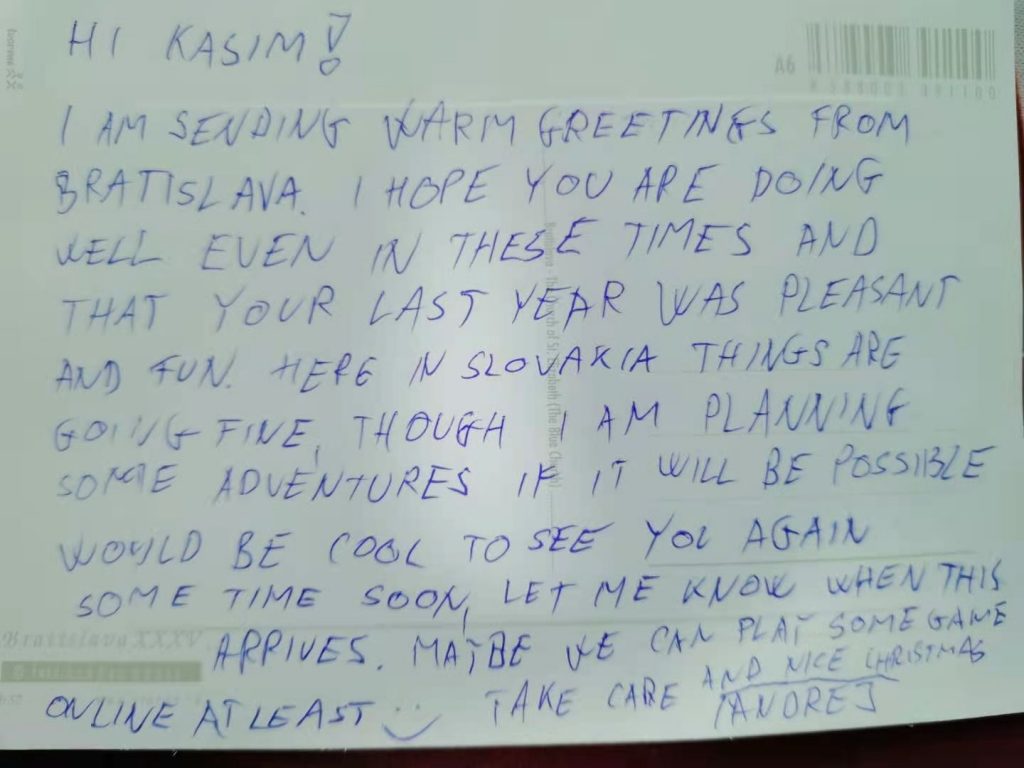 HI KASIM!
A6
I AM SENDING WARM GREETINGS FROM
BRATISLAVA. I HOPE YOU ARE DOING
WELL EVEN IN THESE TIMES AND
THAT YOUR LAST YEAR WAS PLEASANT
AND FUN. HERE IN SLOVAKIA THINGS ARE
GOING FINE, THOUGH I AM PLANNING
SOME ADVENTURES IF IT WILL BE POSSIBLE
WOULD BE COOL TO SEE YOU AGAIN
SOME TIME SOON, LET ME KNOW WHEN THIS
ARRIVES. MAYBE WE CAN PLAY SOME GAME
ONLINE AT LEAST :) TAKE CARE AND NICE CHRISTMAS
ANDREJ
Bratislava XXXV
of St. Elizabeth (The Blue Church)